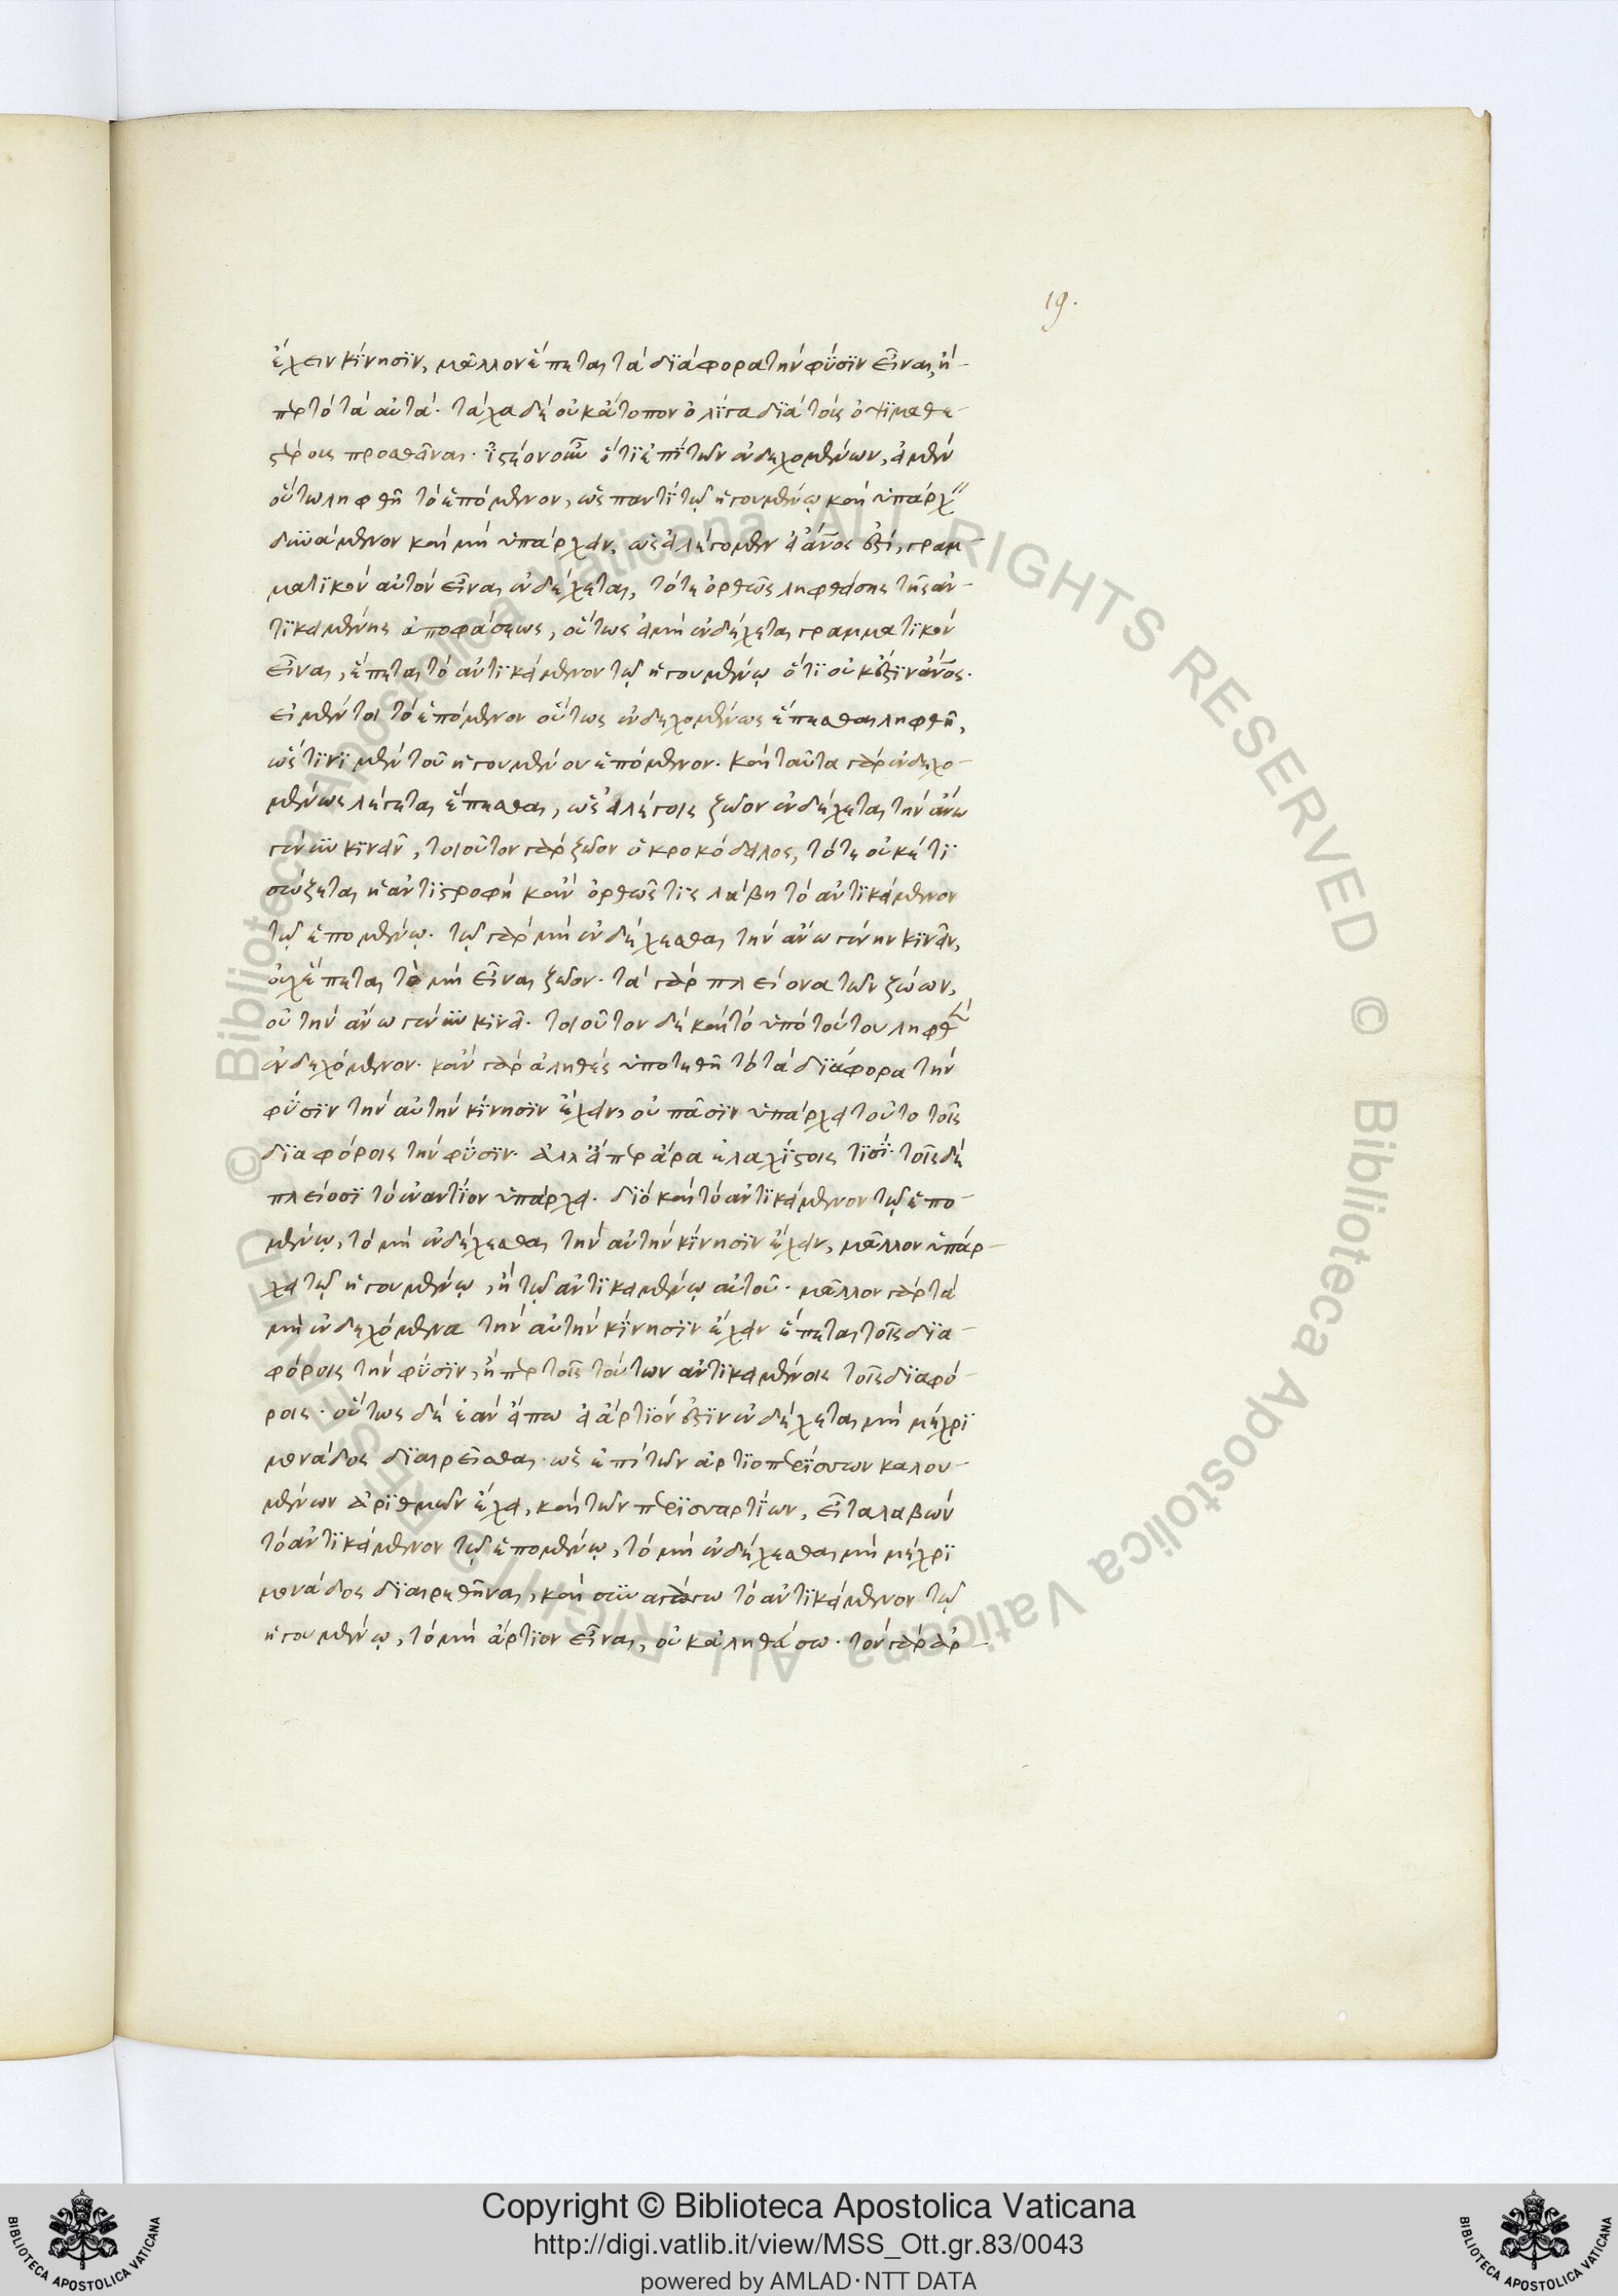 19.
ἔχειν κίνησϊν, μᾶλλον ἕπεται τὰ δϊάφορα τὴν φύσϊν εἶναι, ἤ-
περ τὸ τὰ αὐτά. τάχα δὲ οὐκ ἄτοπον ὀλίγα διὰ τοὺς ὀψϊμαθε-
στέρους προσθεῖναι. ἰστέον οὖν ὅτϊ ἐπὶ τῶν ἐνδεχομένων, εἰ μὲν
οὕτω ληφθῆ τὸ ἑπόμενον, ὡς παντὶ τῷ ἡγουμένῳ καὶ ὑπάρχειν
δυνάμενον καὶ μὴ ὑπάρχειν, ὡς εἰ λέγομεν εἰ ἄνος ἐστί, γραμ-
ματϊκὸν αὐτὸν εἶναι ἐνδέχεται, τότε ὀρθῶς ληφθείσης τῆς ἀν-
τϊκειμένης ἀποφάσεως, οὕτως εἰ μὴ ἐνδέχεται γραμματϊκὸν
εἶναι, ἕπεται τὸ ἀντϊκείμενον τῷ ἡγουμένῳ ὅτι οὐκ ἔστϊν ἄνος.
εἰ μέντοι τὸ ἑπόμενον οὕτως ἐνδεχομένως ἕπεσθαι ληφθῆ,
ὥς τϊνϊ μὲν τοῦ ἡγουμένου ἑπόμενον. καὶ ταῦτα γὰρ ἐνδεχο-
μένως λέγεται ἕπεσθαι, ὡς εἰ λέγοις ζῶον ἐνδέχεται τὴν ἄνω
γένυν κϊνεῖν, τοιοῦτον γὰρ ζῶον ὁ κροκόδειλος, τότε οὐκέτϊ
σώζεται ἡ ἀντϊστροφὴ κἂν ὀρθῶς τϊς λάβη τὸ ἀντϊκείμενον
τῷ ἑπομένῳ. τῷ γὰρ μὴ ἐνδέχεσθαι τὴν ἄνω γένην κϊνεῖν,
οὐχ ἕπεται τὸ μὴ εἶναι ζῶον. τὰ γὰρ πλείονα τῶν ζώων,
οὐ τὴν ἄνω γένυν κϊνεῖ. τοιοῦτον δὲ καὶ τὸ ὑπὸ τούτου ληφθὲν
ἐνδεχόμενον. κἂν γὰρ ἀληθὲς ὑποτεθῆ τὸ τὰ δϊάφορα τὴν
φύσϊν τὴν αὐτὴν κίνησϊν ἔχειν, οὐ πᾶσϊν ὑπάρχει τοῦτο τοῖς
δϊαφόροις τὴν φύσϊν. ἀλλ' εἴπερ ἄρα ἐλαχίστοις τϊσϊ. τοῖς δὲ
πλείοσϊ τὸ ἐναντίον ὑπάρχει. δϊὸ καὶ τὸ ἀντϊκείμενον τῷ ἑπο-
μένῳ, τὸ μὴ ἐνδέχεσθαι τὴν αὐτὴν κίνησϊν ἔχειν, μᾶλλον ὑπάρ-
χει τῷ ἡγουμένῳ, ἢ τῷ ἀντϊκειμένῳ αὐτοῦ. μᾶλλον γὰρ τὰ
μὴ ἐνδεχόμενα τὴν αὐτὴν κίνησϊν ἔχειν ἕπεται τοῖς δϊα-
φόροις τὴν φύσϊν, ἤπερ τοῖς τούτων ἀντϊκειμένοις τοῖς δϊαφό-
ροις. οὕτως δὲ ἐὰν εἴπω εἰ ἄρτϊόν ἐστϊν ἐνδέχεται μὴ μέχρϊ
μονάδος δϊαιρεῖσθαι. ὡς ἐπὶ τῶν ἀρτϊοπερίσσων καλου-
μένων ἀρϊθμῶν ἔχει, καὶ τῶν περϊσσαρτίων, εἶτα λαβὼν
τὸ ἀντϊκείμενον τῷ ἑπομένῳ, τὸ μὴ ἐνδέχεσθαι μὴ μέχρϊ
μονάδος δϊαιρεθῆναι, καὶ συναγάγω τὸ ἀντϊκείμενον τῷ
ἡγουμένῳ, τὸ μὴ ἄρτϊον εἶναι, οὐκ ἀληθεύσω. τὸν γὰρ ἀρ-
Copyright © Biblioteca Apostolica Vaticana
http://digi.vatlib.it/view/MSS_Ott.gr.83/0043
powered by AMLAD·NTT DATA